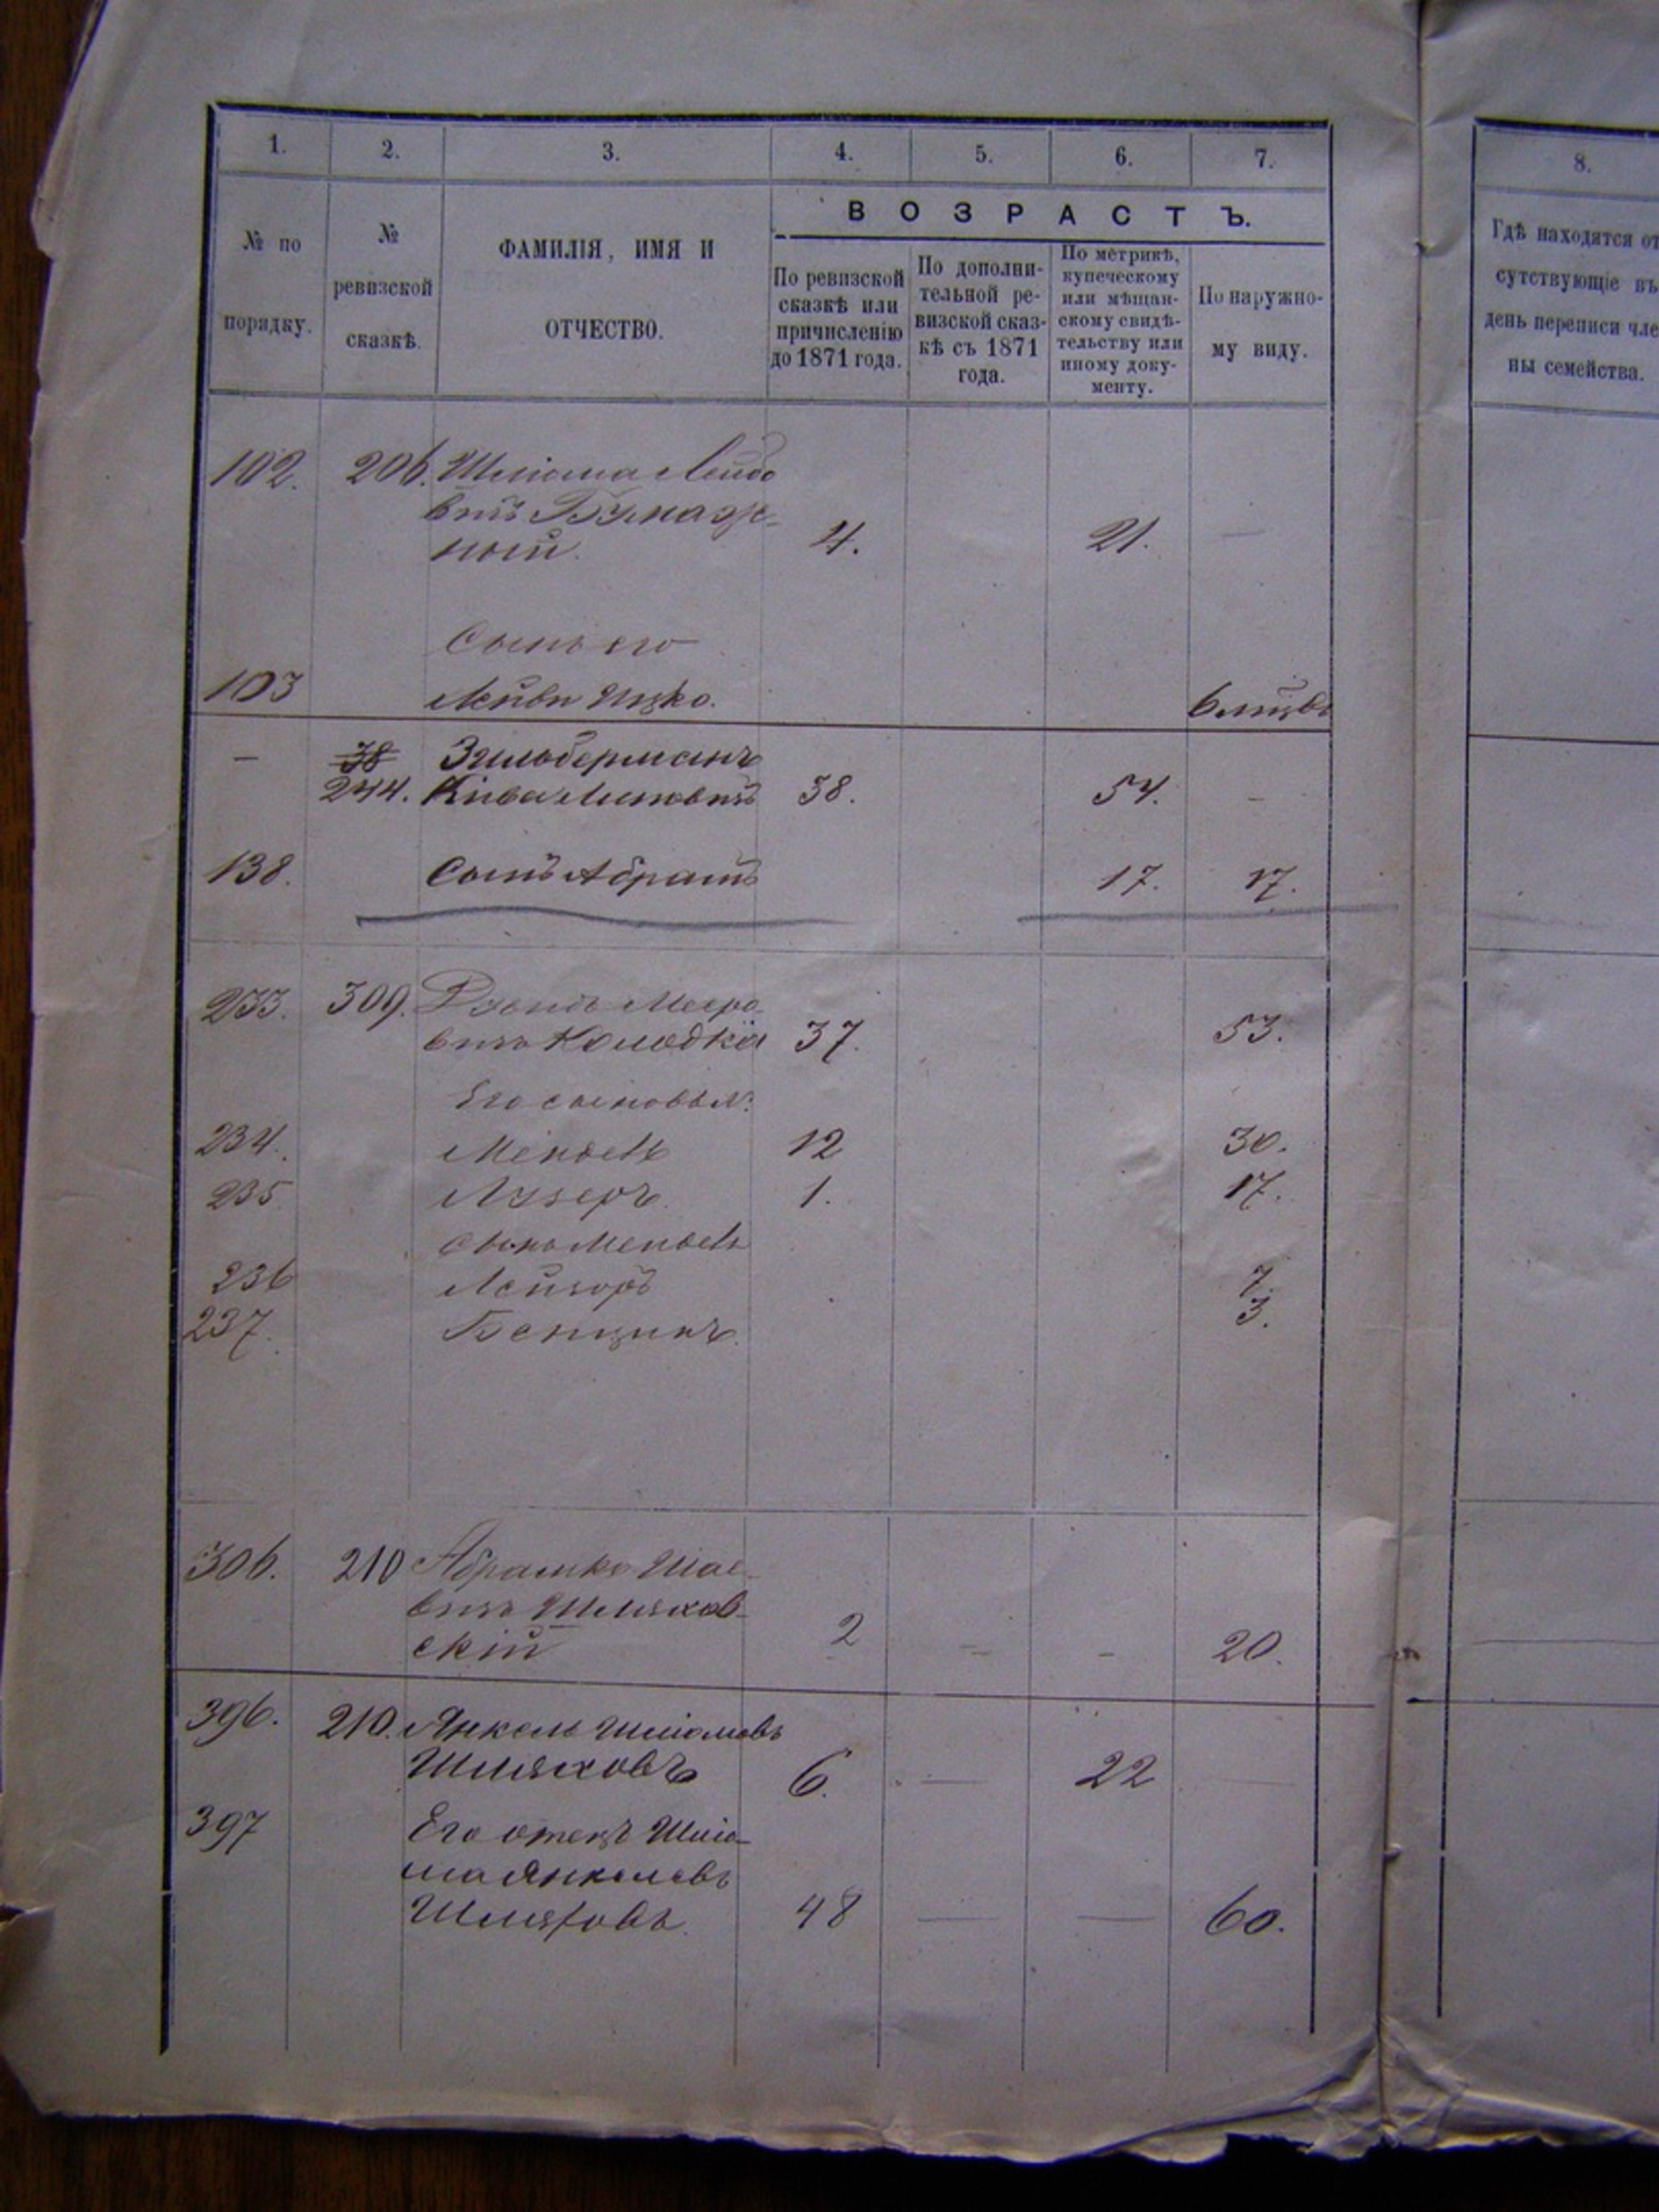 1. 2. 3. 4. 5. 6. 7. 8.
ВОЗРАСТЪ.
№ по
порядку.
№
ревизской
сказкѣ.
ФАМИЛІЯ, ИМЯ И
ОТЧЕСТВО.
По ревизской
сказкѣ или
причисленію
до 1871 года.
По дополни-
тельной ре-
визской сказ-
кѣ съ 1871
года.
По метрикѣ,
купеческому
или мѣщан-
скому свидѣ-
тельству или
иному доку-
менту.
По наружно-
му виду.
Гдѣ находятся от
сутствующіе въ
день переписи чле
ны семейства.
102. 206. Шліома Лейбо
вичъ Бумаж-
ный. 4. 21. —
Сынъ его
103 Ицко.
— 38 Зильберманъ
244. Кива 38. 54. —
138. Сынъ Абрамъ 17. 17.
233. 309. Мееро-
вичъ Колодкій 37. 53.
Его сыновья:
234. Мендель 12 30.
235 Лузеръ. 1. 17.
Сыны Менделя
236 Лейзоръ 7.
237. Бенционъ. 3.
306. 210 Абрамко Шае-
вичъ Шляхов-
скій 2 — — 20.
396. 210. Янкель Шліомовъ
Шляховъ 6. — 22 —
397 Его отецъ Шліо-
ма Янкелевъ
Шляховъ. 48 — — 60.